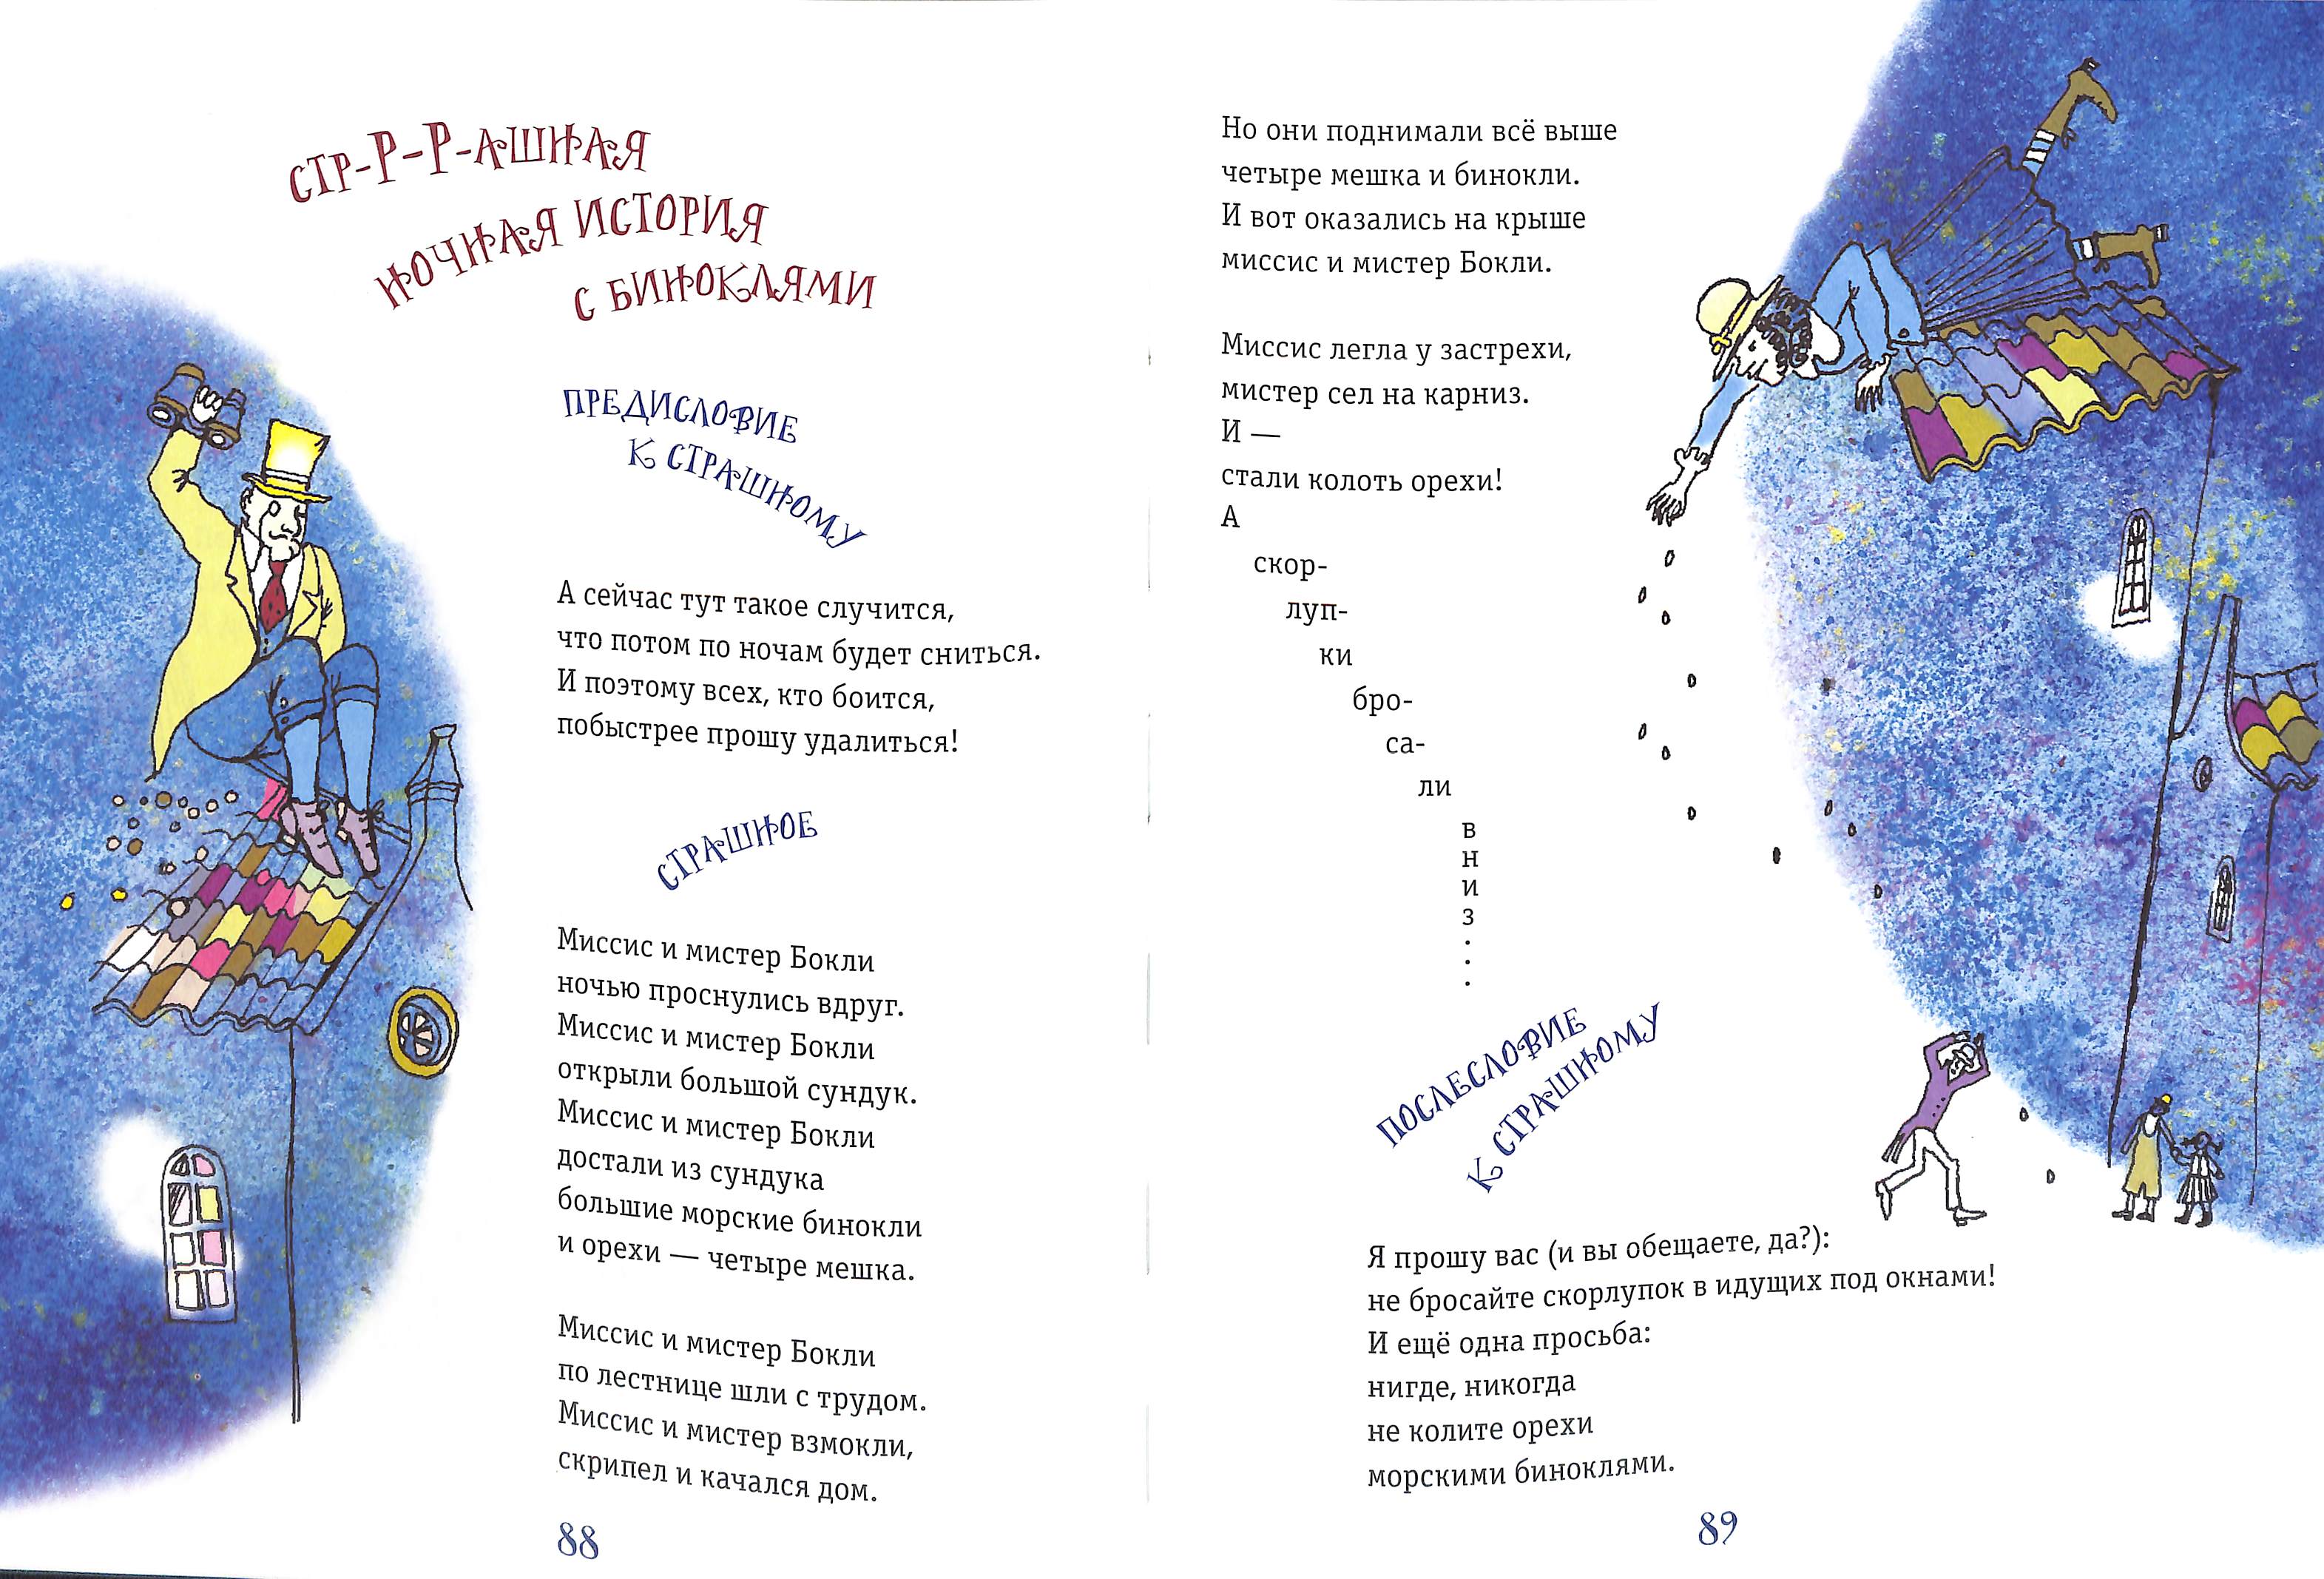 СТР-Р-Р-АШНАЯ
НОЧНАЯ ИСТОРИЯ
С БИНОКЛЯМИ
ПРЕДИСЛОВИЕ
К СТРАШНОМУ
А сейчас тут такое случится,
что потом по ночам будет сниться.
И поэтому всех, кто боится,
побыстрее прошу удалиться!
СТРАШНОЕ
Миссис и мистер Бокли
ночью проснулись вдруг.
Миссис и мистер Бокли
открыли большой сундук.
Миссис и мистер Бокли
достали из сундука
большие морские бинокли
и орехи — четыре мешка.
Миссис и мистер Бокли
по лестнице шли с трудом.
Миссис и мистер взмокли,
скрипел и качался дом.
88
Но они поднимали всё выше
четыре мешка и бинокли.
И вот оказались на крыше
миссис и мистер Бокли.
Миссис легла у застрехи,
мистер сел на карниз.
И —
стали колоть орехи!
А
скор-
луп-
ки
бро-
са-
ли
в
н
и
з
.
.
.
ПОСЛЕСЛОВИЕ
К СТРАШНОМУ
Я прошу вас (и вы обещаете, да?):
не бросайте скорлупок в идущих под окнами!
И ещё одна просьба:
нигде, никогда
не колите орехи
морскими биноклями.
89